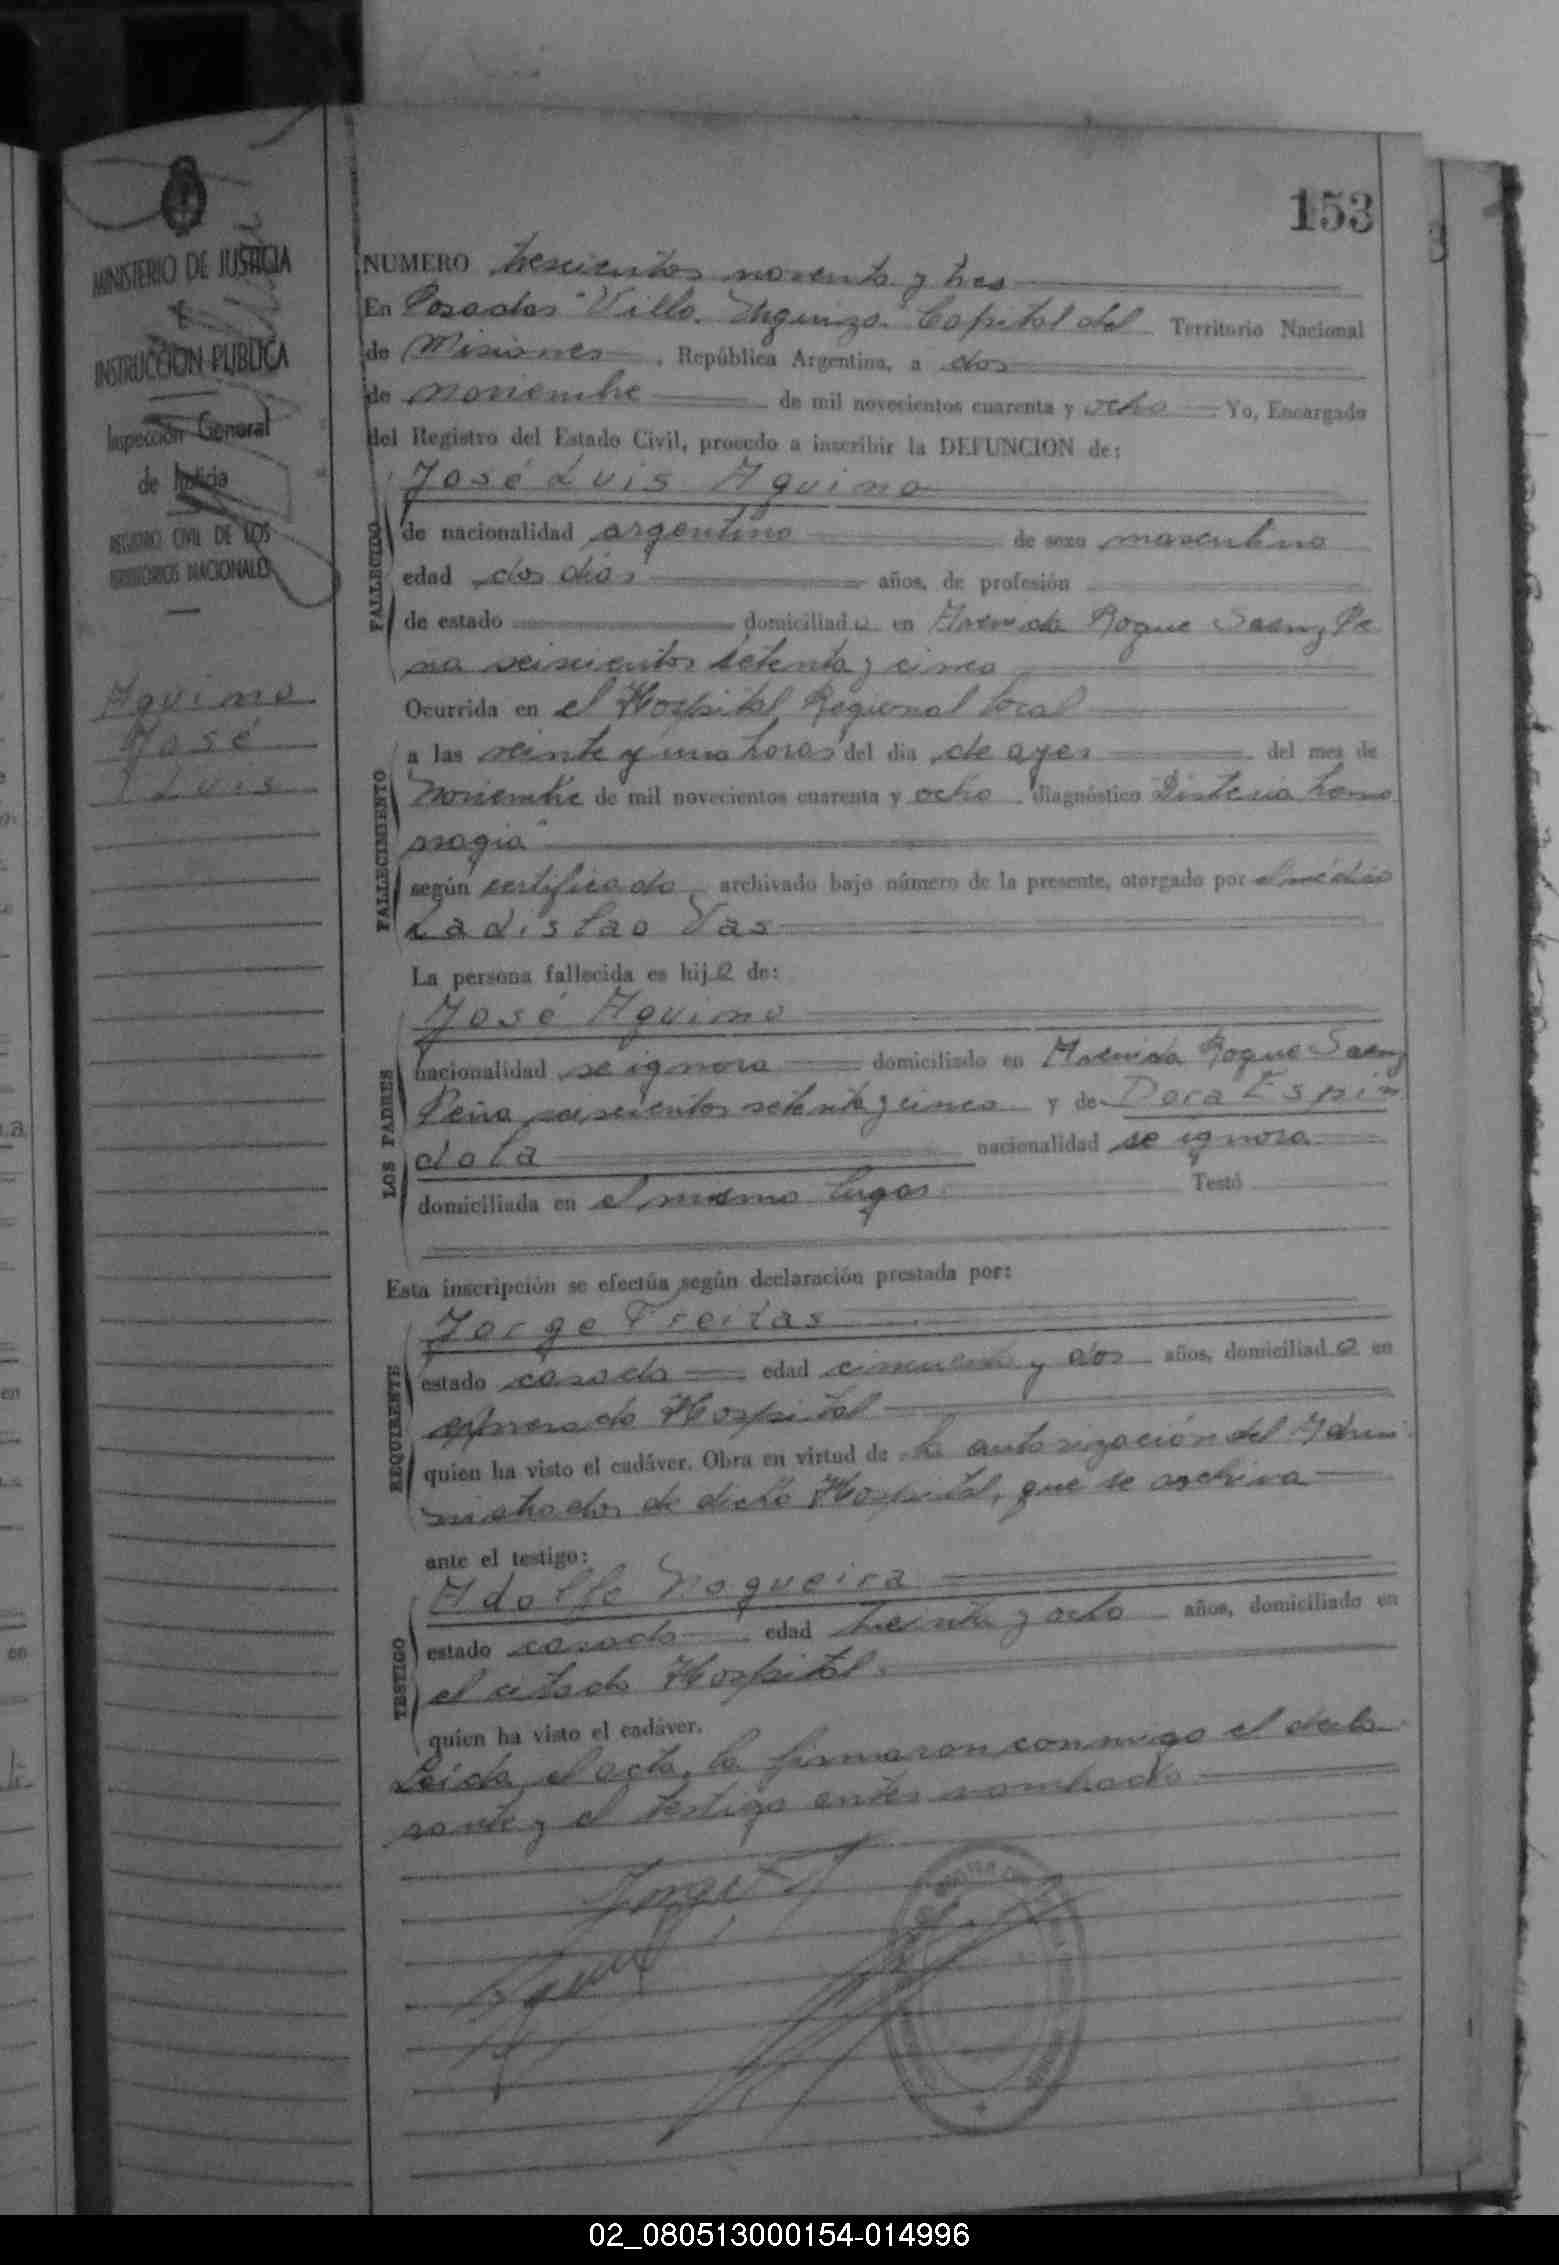 153
MINISTERIO DE JUSTICIA
E
INSTRUCCION PUBLICA
Inspección General
de Justicia
REGISTRO CIVIL DE LOS
TERRITORIOS NACIONALES
Aquino
José
Luis
NUMERO trescientos noventa y tres
En Posadas "Villa Urquiza" Capital del Territorio Nacional
de Misiones, República Argentina, a dos
de noviembre de mil novecientos cuarenta y ocho Yo, Encargado
del Registro del Estado Civil, procedo a inscribir la DEFUNCION de:
FALLECIDO
José Luis Aquino
de nacionalidad argentino de sexo masculino
edad dos días años, de profesión
de estado domiciliado en Avenida Roque Saenz Pe
ña seiscientos setenta y cinco
Ocurrida en el Hospital Regional local
FALLECIMIENTO
a las veinte y una horas del dia de ayer del mes de
Noviembre de mil novecientos cuarenta y ocho diagnóstico
rragia"
según certificado archivado bajo número de la presente, otorgado por el médico
Ladislao Vas
La persona fallecida es hijo de:
LOS PADRES
José Aquino
nacionalidad se ignora domiciliado en Avenida Roque Saenz
Peña seiscientos setenta y cinco y de Dora Espin
dola nacionalidad se ignora
domiciliada en el mismo lugar. Testó
Esta inscripción se efectúa según declaración prestada por:
REQUIRENTE
Jorge Freitas
estado casado edad cincuenta y dos años, domiciliado en
expresado Hospital
quien ha visto el cadáver. Obra en virtud de la autorización del Admi
nistrador de dicho Hospital, que se archiva
ante el testigo:
TESTIGO
Adolfo Nogueira
estado casado edad treinta y ocho años, domiciliado en
el citado Hospital.
quien ha visto el cadáver.
Leida el acta, la firmaron conmigo el decla
rante y el testigo antes nombrado
02_080513000154-014996